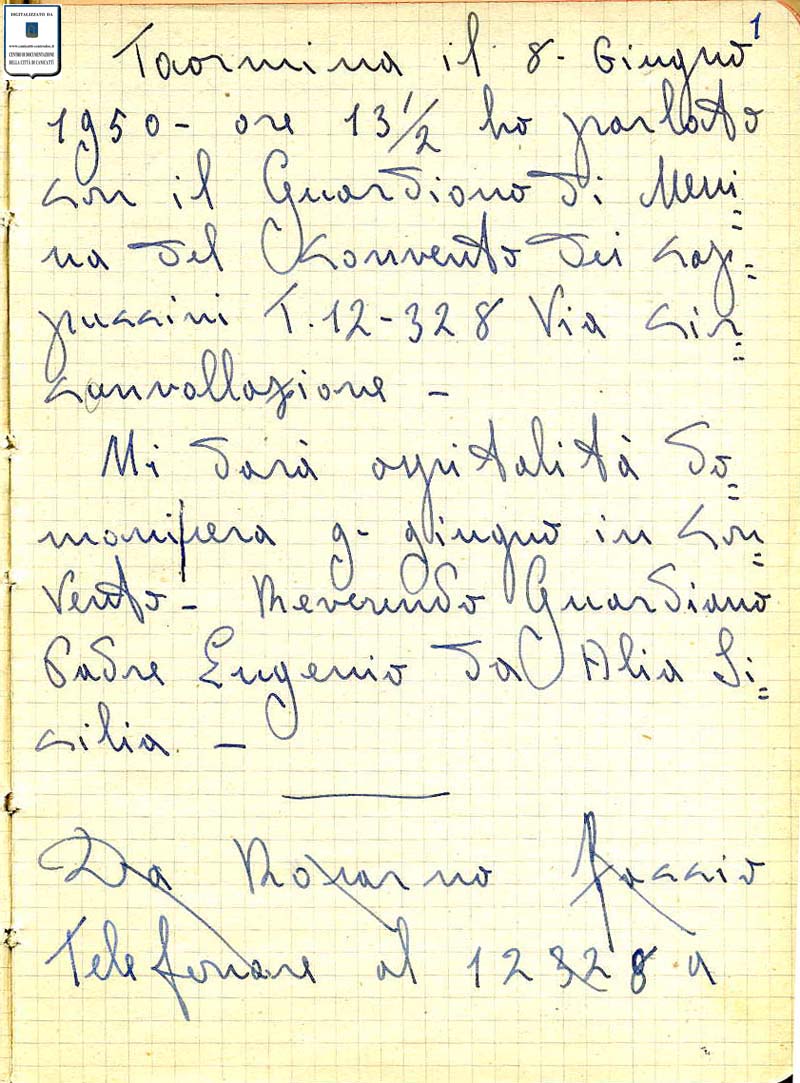 DIGITALIZZATO DA
CENTRO DI DOCUMENTAZIONE
DELLA CITTÀ DI CANICATTÌ
1
Taormina il 8- Giugno
1950- ore 13 1/2 ho parlato
con il Guardiano di Messi=
na del Convento dei cap=
puccini T. 12-328 Via cir=
canvallazione -
Mi darà ospitalità do=
mani sera 9- giugno in con=
vento- Reverendo Guardiano
Padre Eugenio da Alia Si=
cilia. -
Da faccio
Telefonare al 12328 a